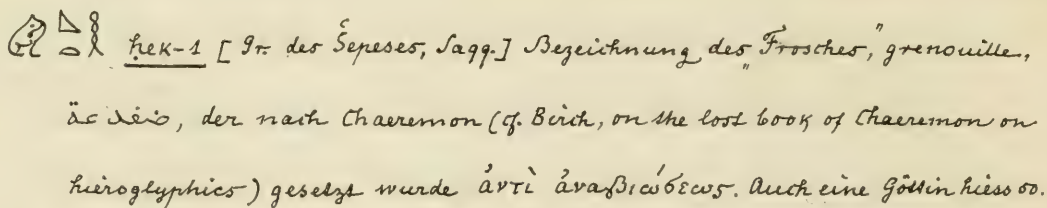 ḥek-t [Gr. des Šepeses, Saqq.] Bezeichnung des „Frosches," grenouille,
ضفدع, der nach Chaeremon (cf. Birch, on the lost book of Chaeremon on
hieroglyphics) gesetzt wurde ἀντὶ ἀναβιώσεως. Auch eine Göttin hiess so.